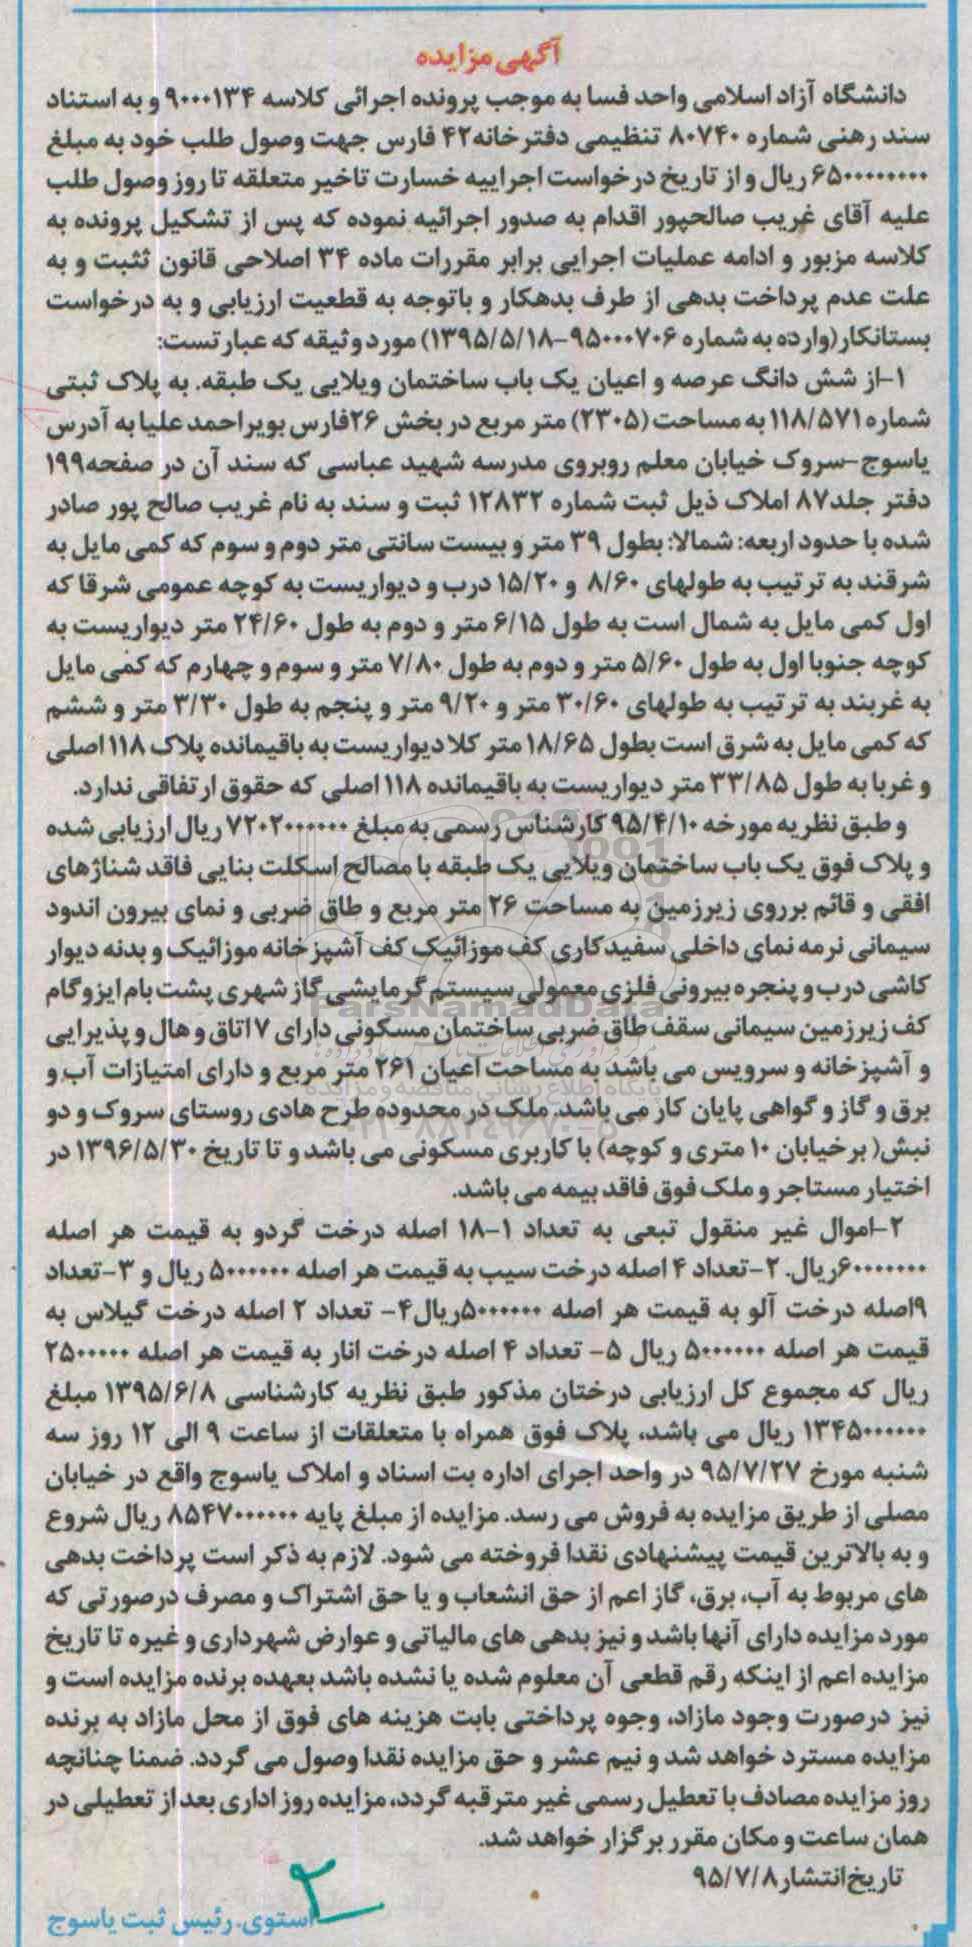 آگهی مزایده
دانشگاه آزاد اسلامی واحد فسا به موجب پرونده اجرائی کلاسه ۹۰۰۰۱۳۴ و به استناد
سند رهنی شماره ۸۰۷۴۰ تنظیمی دفترخانه۴۲ فارس جهت وصول طلب خود به مبلغ
۶۵۰۰۰۰۰۰۰۰ ریال و از تاریخ درخواست اجراییه خسارت تاخیر متعلقه تا روز وصول طلب
علیه آقای غریب صالحپور اقدام به صدور اجرائیه نموده که پس از تشکیل پرونده به
کلاسه مزبور و ادامه عملیات اجرایی برابر مقررات ماده ۳۴ اصلاحی قانون ثثبت و به
علت عدم پرداخت بدهی از طرف بدهکار و باتوجه به قطعیت ارزیابی و به درخواست
بستانکار(وارده به شماره ۹۵۰۰۰۷۰۶-۱۳۹۵/۵/۱۸) مورد وثیقه که عبارتست:
۱-از شش دانگ عرصه و اعیان یک باب ساختمان ویلایی یک طبقه. به پلاک ثبتی
شماره ۱۱۸/۵۷۱ به مساحت (۲۳۰۵) متر مربع در بخش ۲۶فارس بویراحمد علیا به آدرس
یاسوج-سروک خیابان معلم روبروی مدرسه شهید عباسی که سند آن در صفحه۱۹۹
دفتر جلد۸۷ املاک ذیل ثبت شماره ۱۲۸۳۲ ثبت و سند به نام غریب صالح پور صادر
شده با حدود اربعه: شمالا: بطول ۳۹ متر و بیست سانتی متر دوم و سوم که کمی مایل به
شرقند به ترتیب به طولهای ۸/۶۰ و ۱۵/۲۰ درب و دیواریست به کوچه عمومی شرقا که
اول کمی مایل به شمال است به طول ۶/۱۵ متر و دوم به طول ۲۴/۶۰ متر دیواریست به
کوچه جنوبا اول به طول ۵/۶۰ متر و دوم به طول ۷/۸۰ متر و سوم و چهارم که کمی مایل
به غربند به ترتیب به طولهای ۳۰/۶۰ متر و ۹/۲۰ متر و پنجم به طول ۳/۳۰ متر و ششم
که کمی مایل به شرق است بطول ۱۸/۶۵ متر کلا دیواریست به باقیمانده پلاک ۱۱۸ اصلی
و غربا به طول ۳۳/۸۵ متر دیواریست به باقیمانده ۱۱۸ اصلی که حقوق ارتفاقی ندارد.
و طبق نظریه مورخه ۹۵/۴/۱۰ کارشناس رسمی به مبلغ ۷۲۰۲۰۰۰۰۰۰ ریال ارزیابی شده
و پلاک فوق یک باب ساختمان ویلایی یک طبقه با مصالح اسکلت بنایی فاقد شناژهای
افقی و قائم برروی زیرزمین به مساحت ۲۶ متر مربع و طاق ضربی و نمای بیرون اندود
سیمانی نرمه نمای داخلی سفیدکاری کف موزائیک کف آشپزخانه موزائیک و بدنه دیوار
کاشی درب و پنجره بیرونی فلزی معمولی سیستم گرمایشی گاز شهری پشت بام ایزوگام
کف زیرزمین سیمانی سقف طاق ضربی ساختمان مسکونی دارای ۷ اتاق و هال و پذیرایی
و آشپزخانه و سرویس می باشد به مساحت اعیان ۲۶۱ متر مربع و دارای امتیازات آب و
برق و گاز و گواهی پایان کار می باشد. ملک در محدوده طرح هادی روستای سروک و دو
نبش( برخیابان ۱۰ متری و کوچه) با کاربری مسکونی می باشد و تا تاریخ ۱۳۹۶/۵/۳۰ در
اختیار مستاجر و ملک فوق فاقد بیمه می باشد.
۲-اموال غیر منقول تبعی به تعداد ۱-۱۸ اصله درخت گردو به قیمت هر اصله
۶۰۰۰۰۰۰۰ریال. ۲-تعداد ۴ اصله درخت سیب به قیمت هر اصله ۵۰۰۰۰۰۰ ریال و ۳-تعداد
۹اصله درخت آلو به قیمت هر اصله ۵۰۰۰۰۰۰ریال۴- تعداد ۲ اصله درخت گیلاس به
قیمت هر اصله ۵۰۰۰۰۰۰ ریال ۵- تعداد ۴ اصله درخت انار به قیمت هر اصله ۲۵۰۰۰۰۰
ریال که مجموع کل ارزیابی درختان مذکور طبق نظریه کارشناسی ۱۳۹۵/۶/۸ مبلغ
۱۳۴۵۰۰۰۰۰۰ ریال می باشد، پلاک فوق همراه با متعلقات از ساعت ۹ الی ۱۲ روز سه
شنبه مورخ ۹۵/۷/۲۷ در واحد اجرای اداره بت اسناد و املاک یاسوج واقع در خیابان
مصلی از طریق مزایده به فروش می رسد. مزایده از مبلغ پایه ۸۵۴۷۰۰۰۰۰۰ ریال شروع
و به بالاترین قیمت پیشنهادی نقدا فروخته می شود. لازم به ذکر است پرداخت بدهی
های مربوط به آب، برق، گاز اعم از حق انشعاب و یا حق اشتراک و مصرف درصورتی که
مورد مزایده دارای آنها باشد و نیز بدهی های مالیاتی و عوارض شهرداری و غیره تا تاریخ
مزایده اعم از اینکه رقم قطعی آن معلوم شده یا نشده باشد بعهده برنده مزایده است و
نیز درصورت وجود مازاد، وجوه پرداختی بابت هزینه های فوق از محل مازاد به برنده
مزایده مسترد خواهد شد و نیم عشر و حق مزایده نقدا وصول می گردد. ضمنا چنانچه
روز مزایده مصادف با تعطیل رسمی غیر مترقبه گردد، مزایده روز اداری بعد از تعطیلی در
همان ساعت و مکان مقرر برگزار خواهد شد.
تاریخ انتشار ۹۵/۷/۸
۲
استوی. رئیس ثبت یاسوج
ParsNamadData
پایگاه اطلاع رسانی مناقصه و مزایده